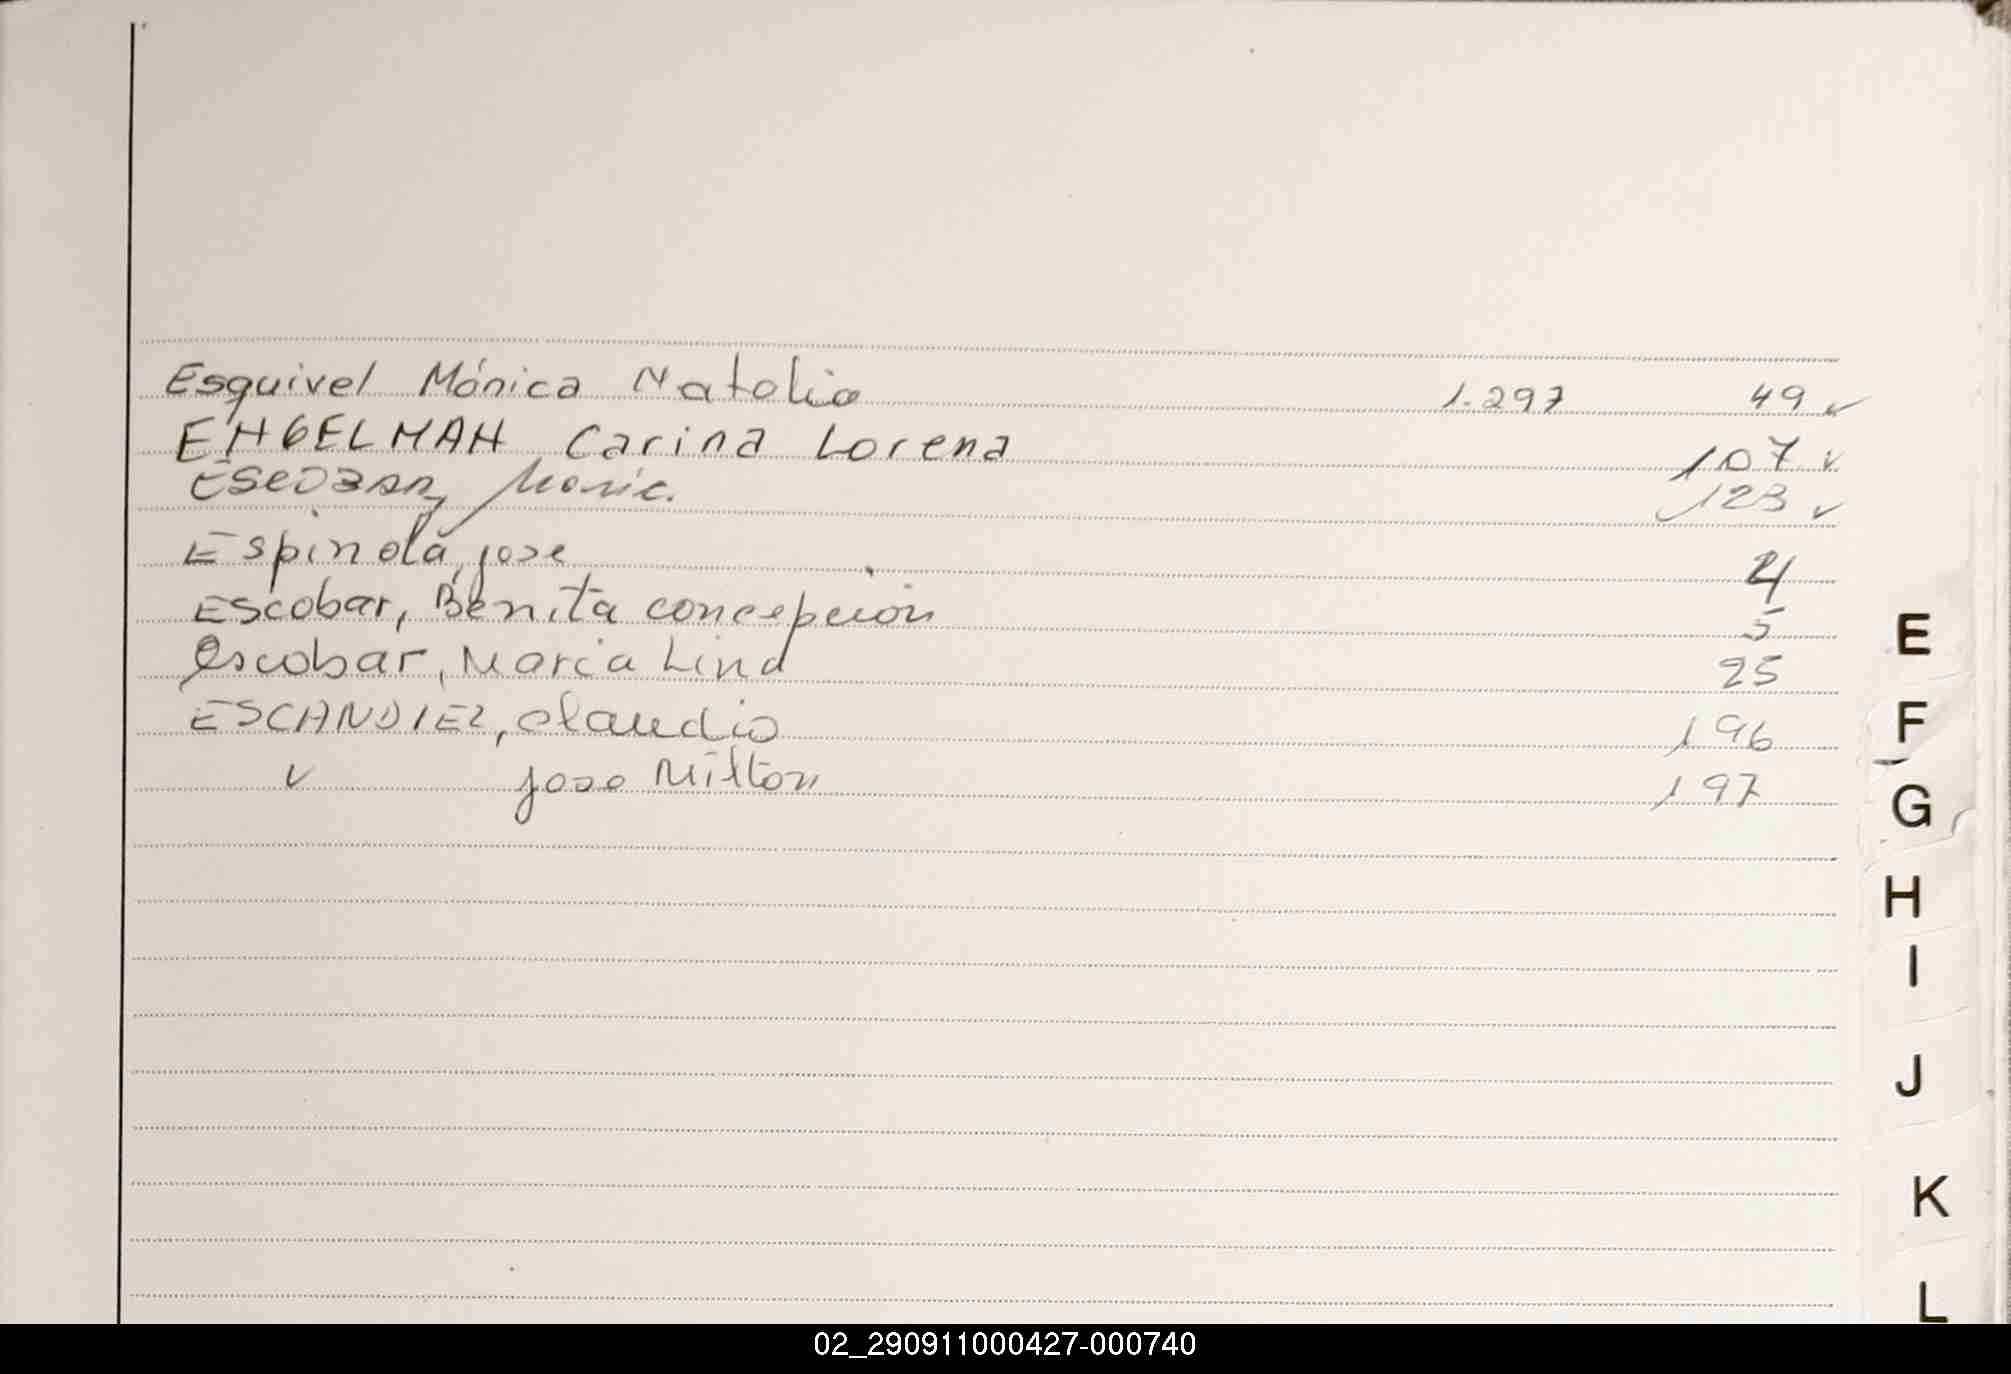 Esquivel Mónica Natalia 1.297 49 ✓
ENGELMAN Carina Lorena 107 ✓
ESCOBAR, 123 ✓
Espinola, jose
Escobar, Benita concepcion 5
Escobar, Maria Lina 25
ESCANDIEZ, claudio 196
jose Milton 197
E
F
G
H
I
J
K
L
02_290911000427-000740